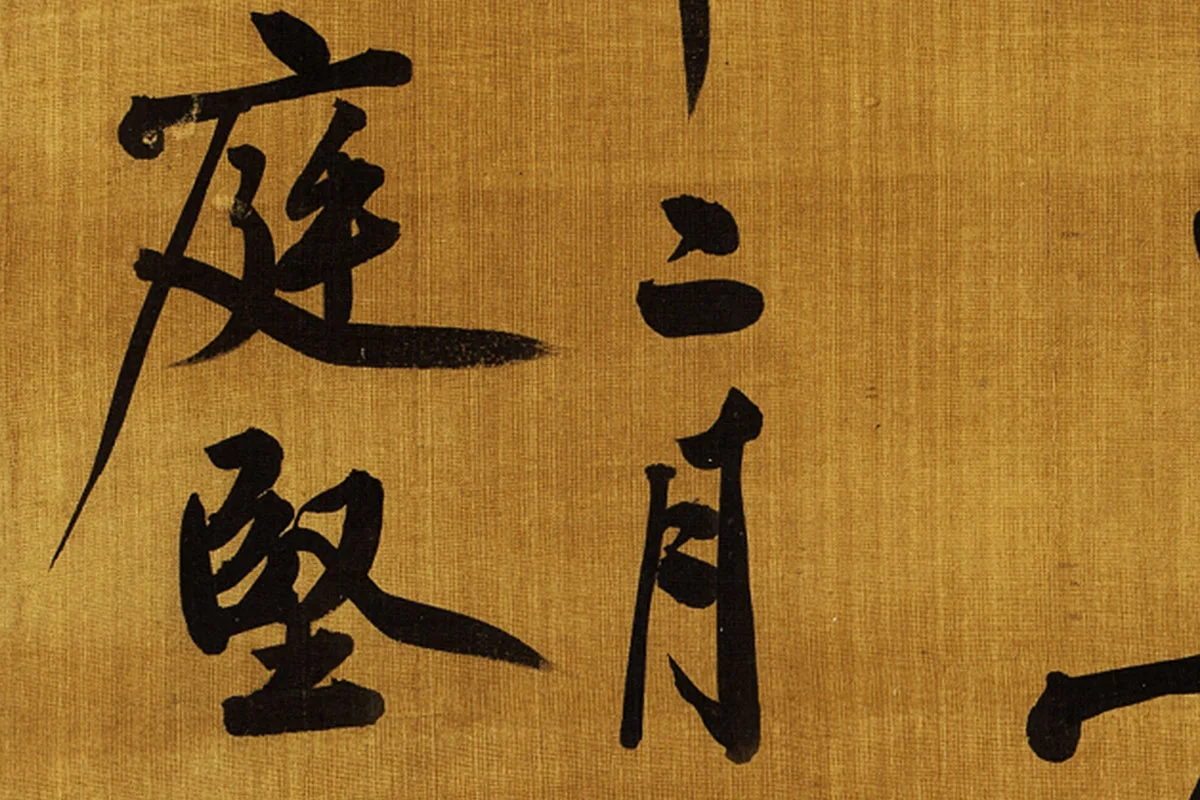 二月
庭堅